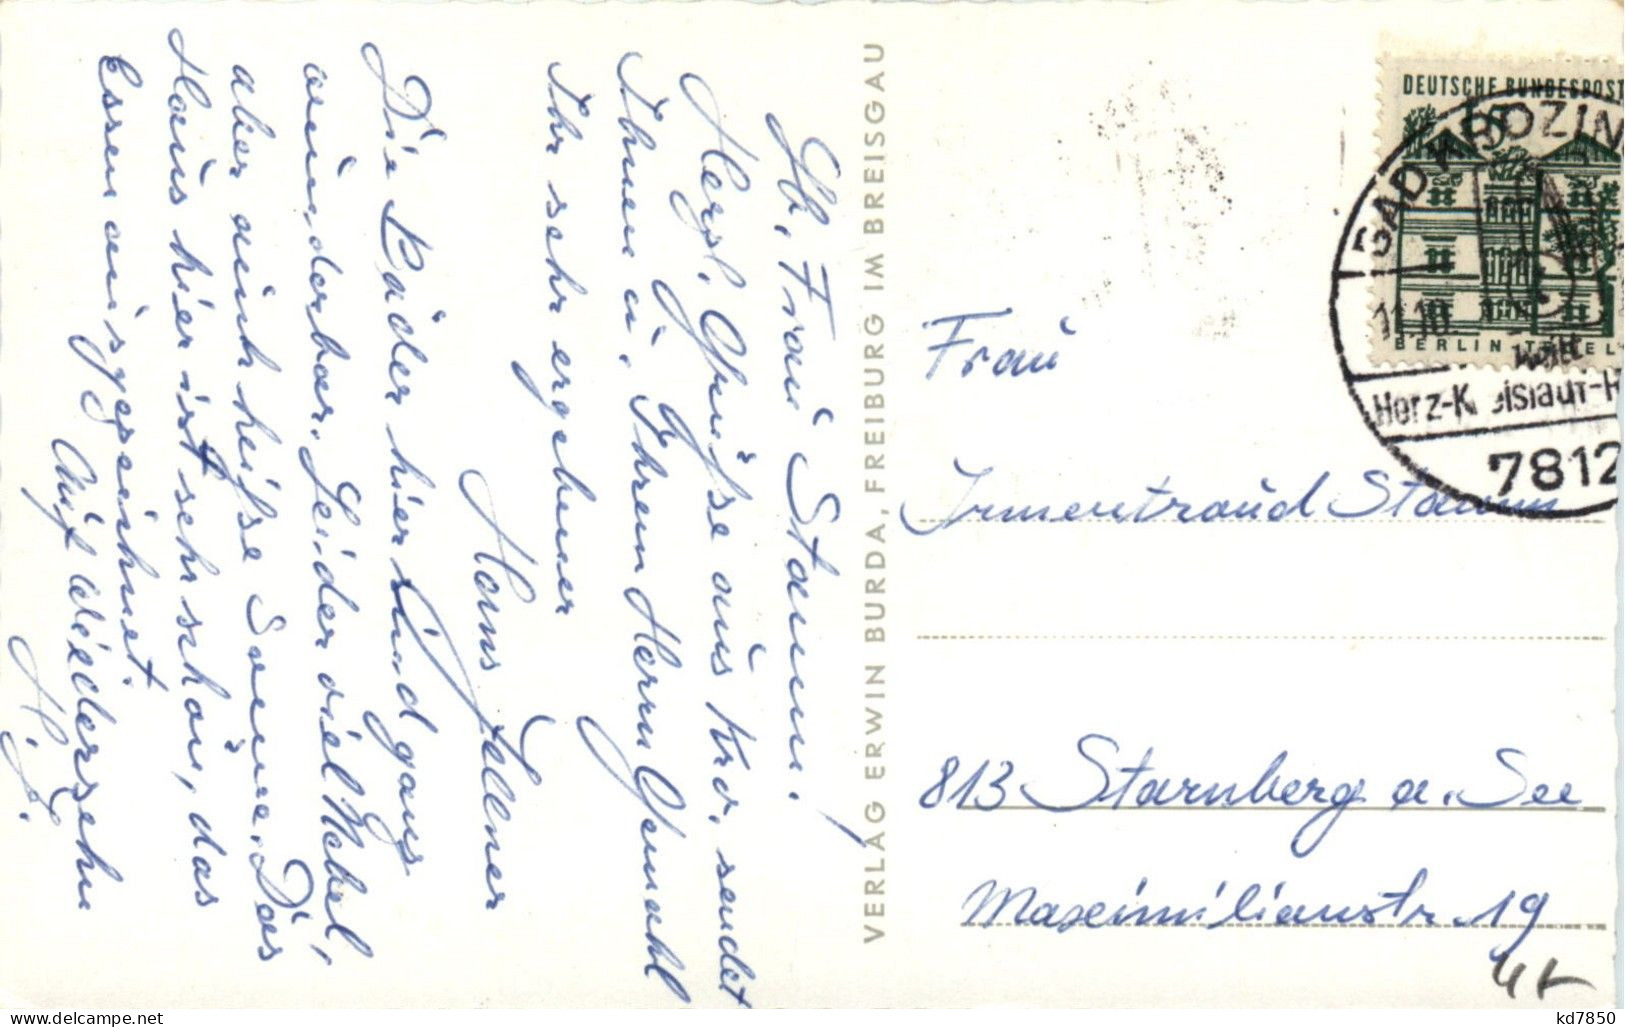 Lb. Frau Stamm.
Herzl. Grüße aus Kro. sendet
Ihnen u. Ihrem Herrn Gemahl
Ihr sehr ergebener
Hans Zellner
Die Bäder hier sind ganz
wunderbar. Leider viel Nebel,
aber auch heiße Sonne. Das
Haus hier ist sehr schön, das
Essen ausgezeichnet.
Auf Wiedersehn
H. Z.
VERLAG ERWIN BURDA, FREIBURG IM BREISGAU
DEUTSCHE BUNDESPOST
BERLIN TEGEL
BAD KROZIN
11.10
Herz-Kreislauf-
7812
Frau
Irmentraud Stamm
813 Starnberg a. See
Maximilianstr. 19
kd7850